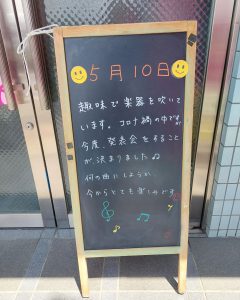 5月10日
趣味で楽器を吹いて
います。コロナ禍の中ですが
今度、発表会をすること
が、決まりました♫
何の曲にしようか、
今からとても楽しみです